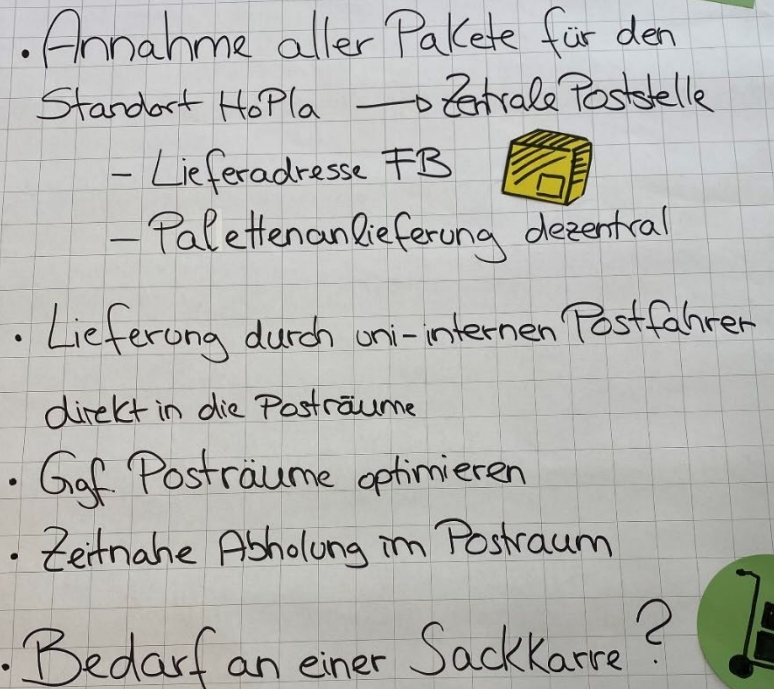 · Annahme aller Pakete für den
Standort HoPla → Zentrale Poststelle
- Lieferadresse FB
- Palettenanlieferung dezentral
· Lieferung durch uni-internen Postfahrer
direkt in die Posträume
· Ggf. Posträume optimieren
· Zeitnahe Abholung im Postraum
· Bedarf an einer Sackkarre?